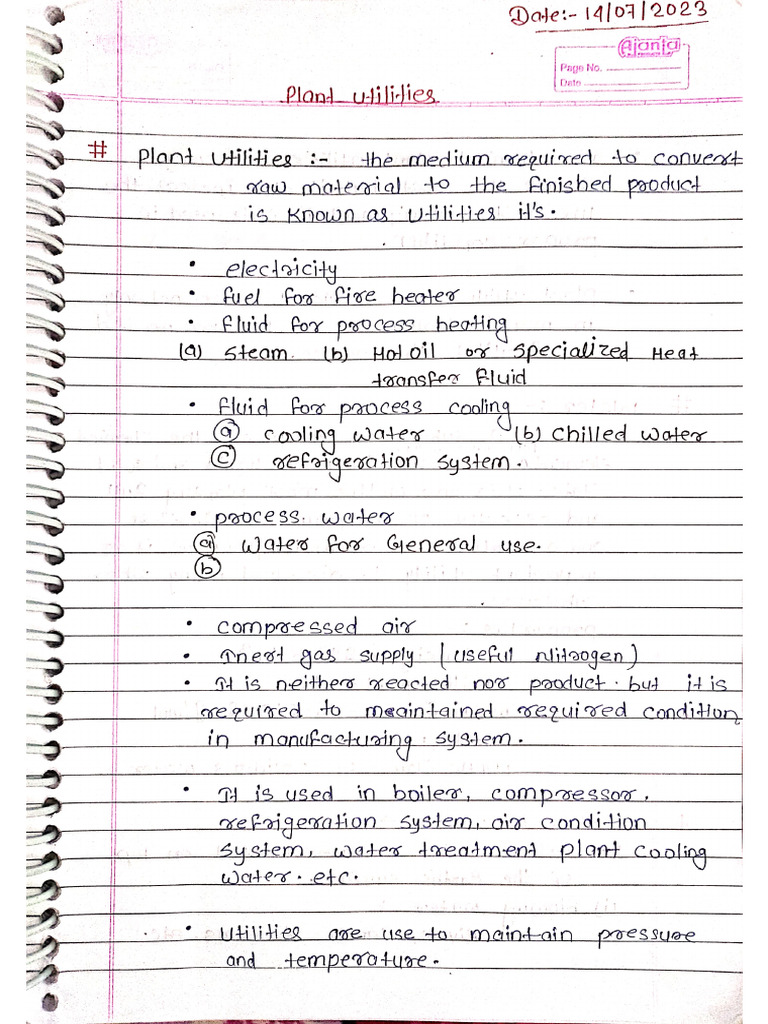 Date:- 14/07/2023
Ajanta
Page No.
Date
Plant Utilities
# Plant Utilities :- the medium required to convert
raw material to the finished product
is known as utilities it's.
• electricity
• fuel for fire heater
• fluid for process heating
(a) Steam (b) Hot oil or specialized Heat
transfer fluid
• fluid for process cooling
(a) cooling water (b) chilled water
(c) refrigeration system.
• process water
(a) Water for General use.
(b)
• compressed air
• Inert gas supply (useful Nitrogen)
• It is neither reacted nor product. but it is
required to maintained required condition
in manufacturing system.
• It is used in boiler, compressor,
refrigeration system, air condition
system, water treatment plant cooling
water. etc.
• Utilities are use to maintain pressure
and temperature.